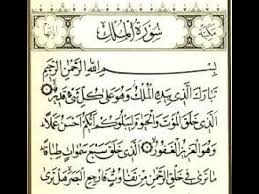 سُورَةُ المُلْكِ
مكية
بِسْمِ اللهِ الرَّحْمٰنِ الرَّحِيمِ
تَبَارَكَ الَّذِي بِيَدِهِ الْمُلْكُ وَهُوَ عَلَى كُلِّ شَيْءٍ قَدِيرٌ
الَّذِي خَلَقَ الْمَوْتَ وَالْحَيٰوةَ لِيَبْلُوَكُمْ أَيُّكُمْ أَحْسَنُ عَمَلًا
وَهُوَ الْعَزِيزُ الْغَفُورُ الَّذِي خَلَقَ سَبْعَ سَمٰوَاتٍ طِبَاقًا
مَا تَرٰى فِي خَلْقِ الرَّحْمٰنِ مِنْ تَفَاوُتٍ فَارْجِعِ الْبَصَرَ هَلْ تَرٰى